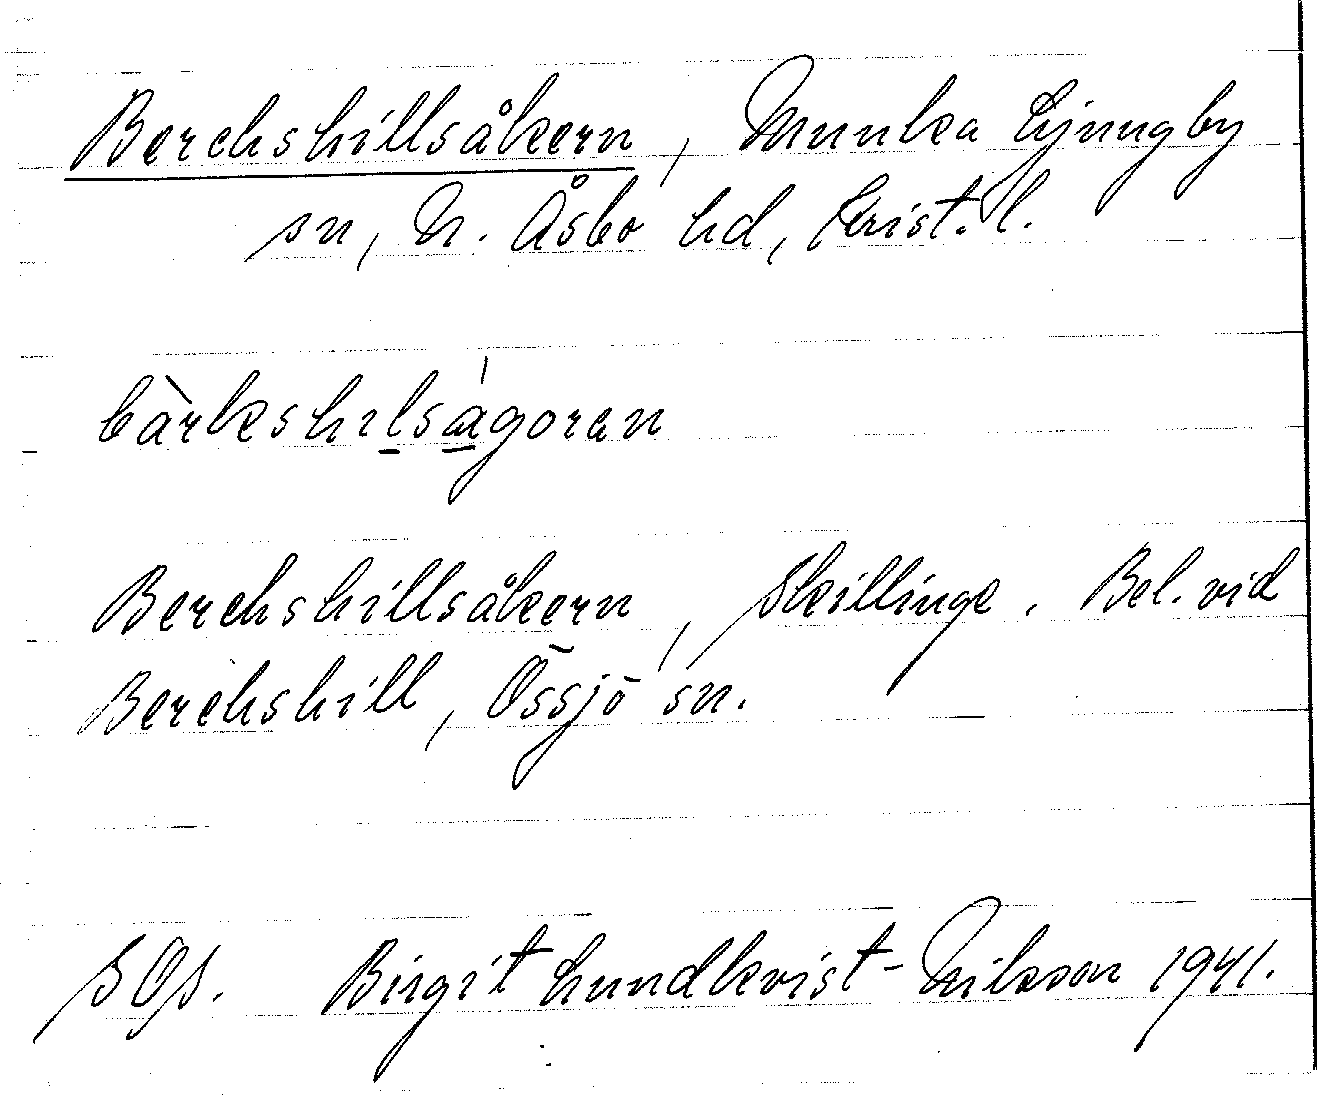 Berchshillsåkern, Munka Ljungby
sn, N. Åsbo hd, Krist. l.
bàrkshılsa̍goran
Berchshillsåkern, Skillinge. Bel. vid
Berchshill, Össjö sn.
SOS. Birgit Lundkvist-Nilsson 1941.